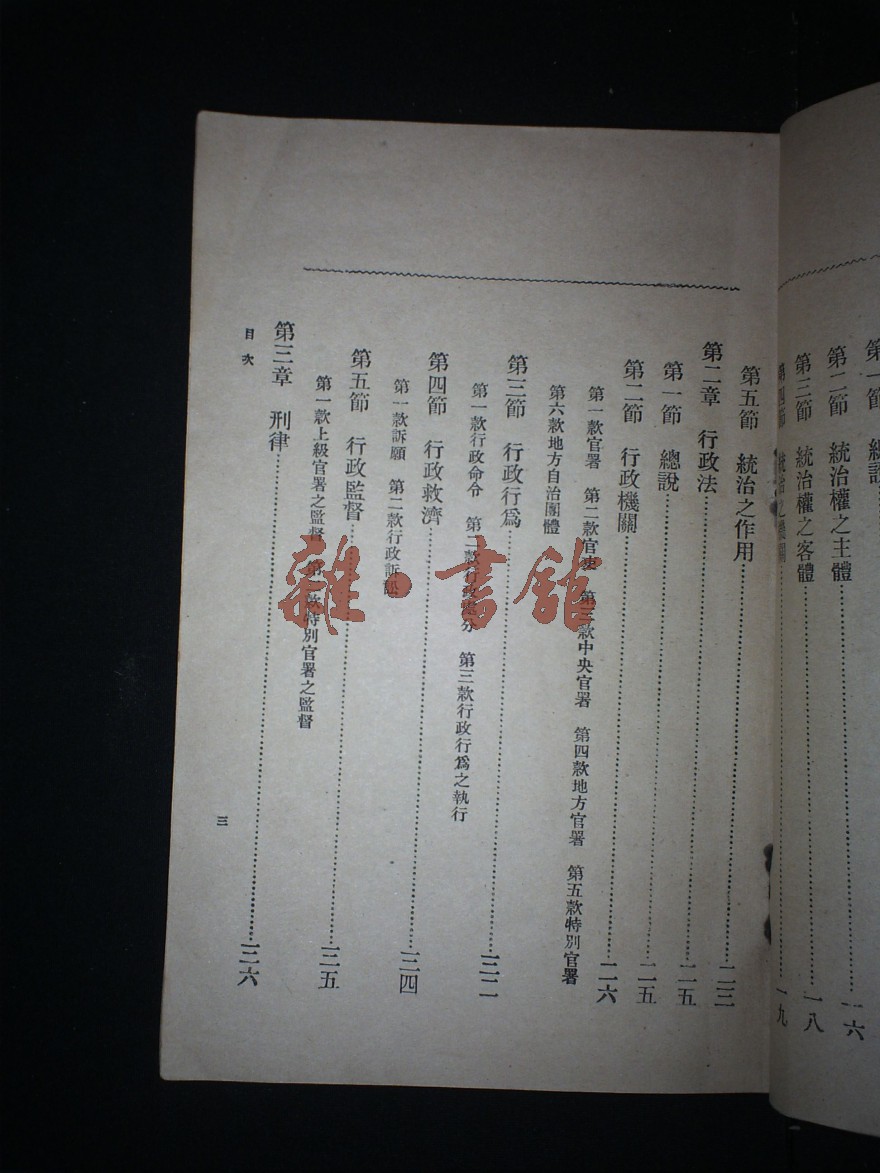 第二節 統治權之主體 一六
第三節 統治權之客體 一八
第四節 一九
第五節 統治之作用 二三
第二章 行政法 二五
第一節 總說 二五
第二節 行政機關 二六
第一款官署 第二款官吏 第三款中央官署 第四款地方官署 第五款特別官署
第六款地方自治團體
第三節 行政行爲 三二
第一款行政命令 第二款行政處分 第三款行政行爲之執行
第四節 行政救濟 三四
第一款訴願 第二款行政訴訟
第五節 行政監督 三五
第一款上級官署之監督 第二款特別官署之監督
第三章 刑律 三六
目次
三
雜·書館